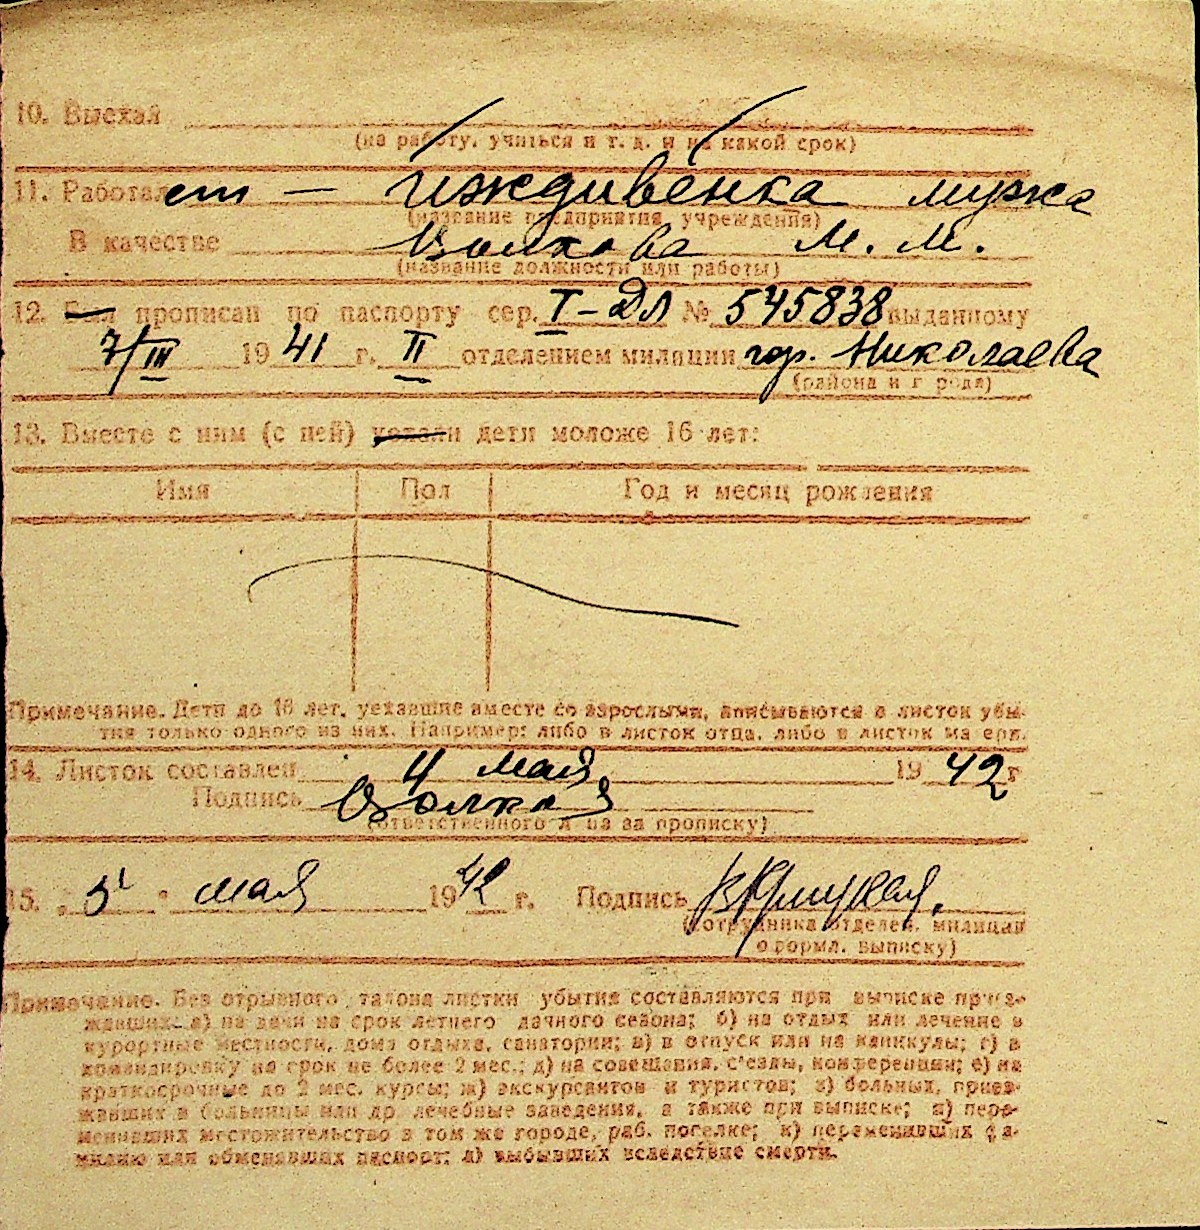 10. Выехал
(на работу, учиться и т. д. и на какой срок)
11. Работает — иждивенка мужа
(название предприятия, учреждения)
В качестве Волкова М. М.
(название должности или работы)
12. Был прописан по паспорту сер. I-ДЛ № 545838 выданному
7/III 1941 г. II отделением милиции гор. Николаева
(района и города)
13. Вместе с ним (с ней) уехали дети моложе 16 лет:
Имя Пол Год и месяц рождения
Примечание. Дети до 16 лет, уехавшие вместе со взрослыми, вписываются в листок убы-
тия только одного из них. Например: либо в листок отца, либо в листок матери.
14. Листок составлен 4 мая 1942 г
Подпись Волкова
(ответственного лица за прописку)
15. „5" мая 1942 г. Подпись
(сотрудника отделен. милиции
оформл. выписку)
Примечание. Без отрывного талона листки убытия составляются при выписке приез-
жавших: а) на дачи на срок летнего дачного сезона; б) на отдых или лечение в
курортные местности, дома отдыха, санатории; в) в отпуск или на каникулы; г) в
командировку на срок не более 2 мес.; д) на совещания, с'езды, конференции; е) на
краткосрочные до 2 мес. курсы; ж) экскурсантов и туристов; з) больных, приез-
жавших в больницы или др лечебные заведения, а также при выписке; и) пере-
менивших местожительство в том же городе, раб. поселке; к) переменивших фа-
милию или обменявших паспорт; л) выбывших вследствие смерти.